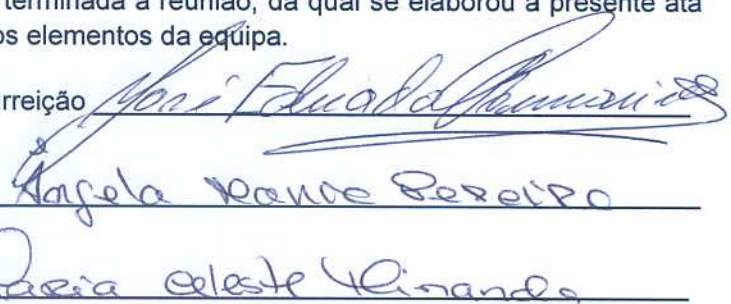 terminada a reunião, da qual se elaborou a presente ata
os elementos da equipa.
rreição José Eduardo
Ângela Pereira
Maria Celeste Miranda